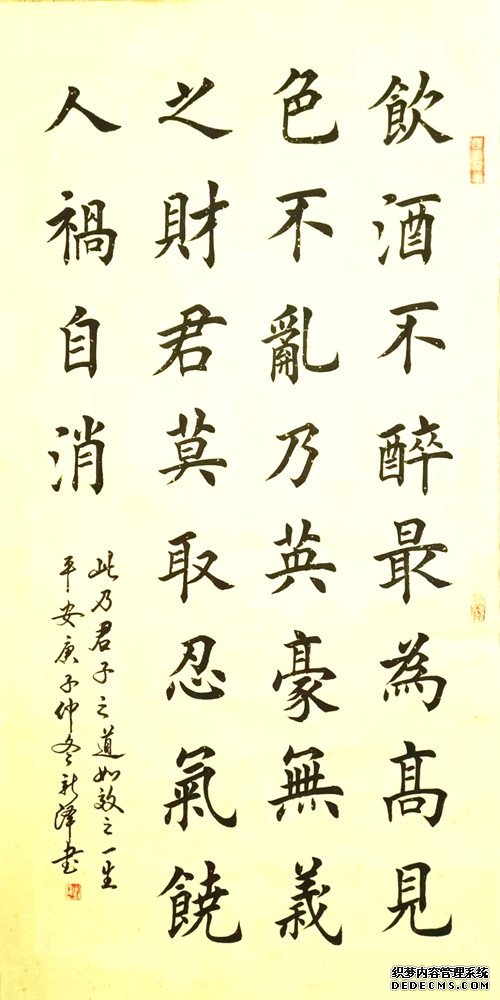 飲酒不醉最為髙見
色不亂乃英豪無義
之財君莫取忍氣饒
人禍自消
此乃君子之道如效之一生
平安庚子仲冬新澤書
织梦内容管理系统
DEDECMS.COM